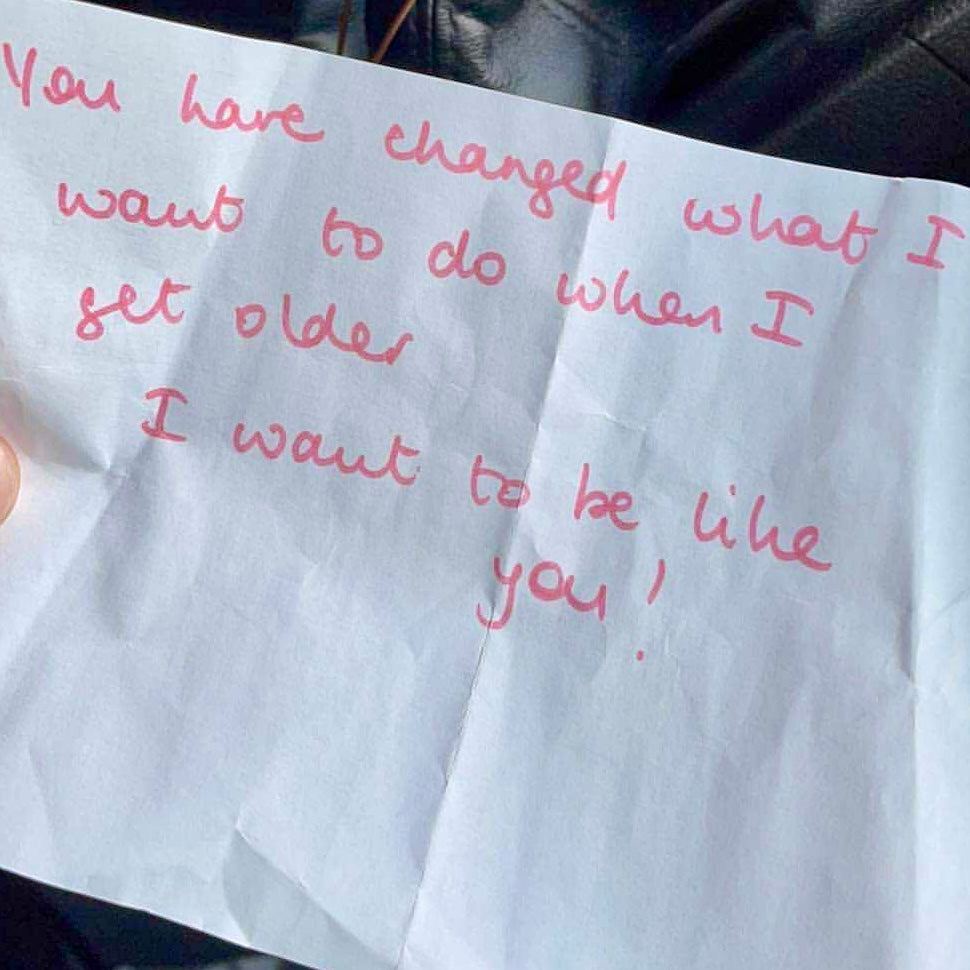 You have changed what I
want to do when I
get older
I want to be like
you!